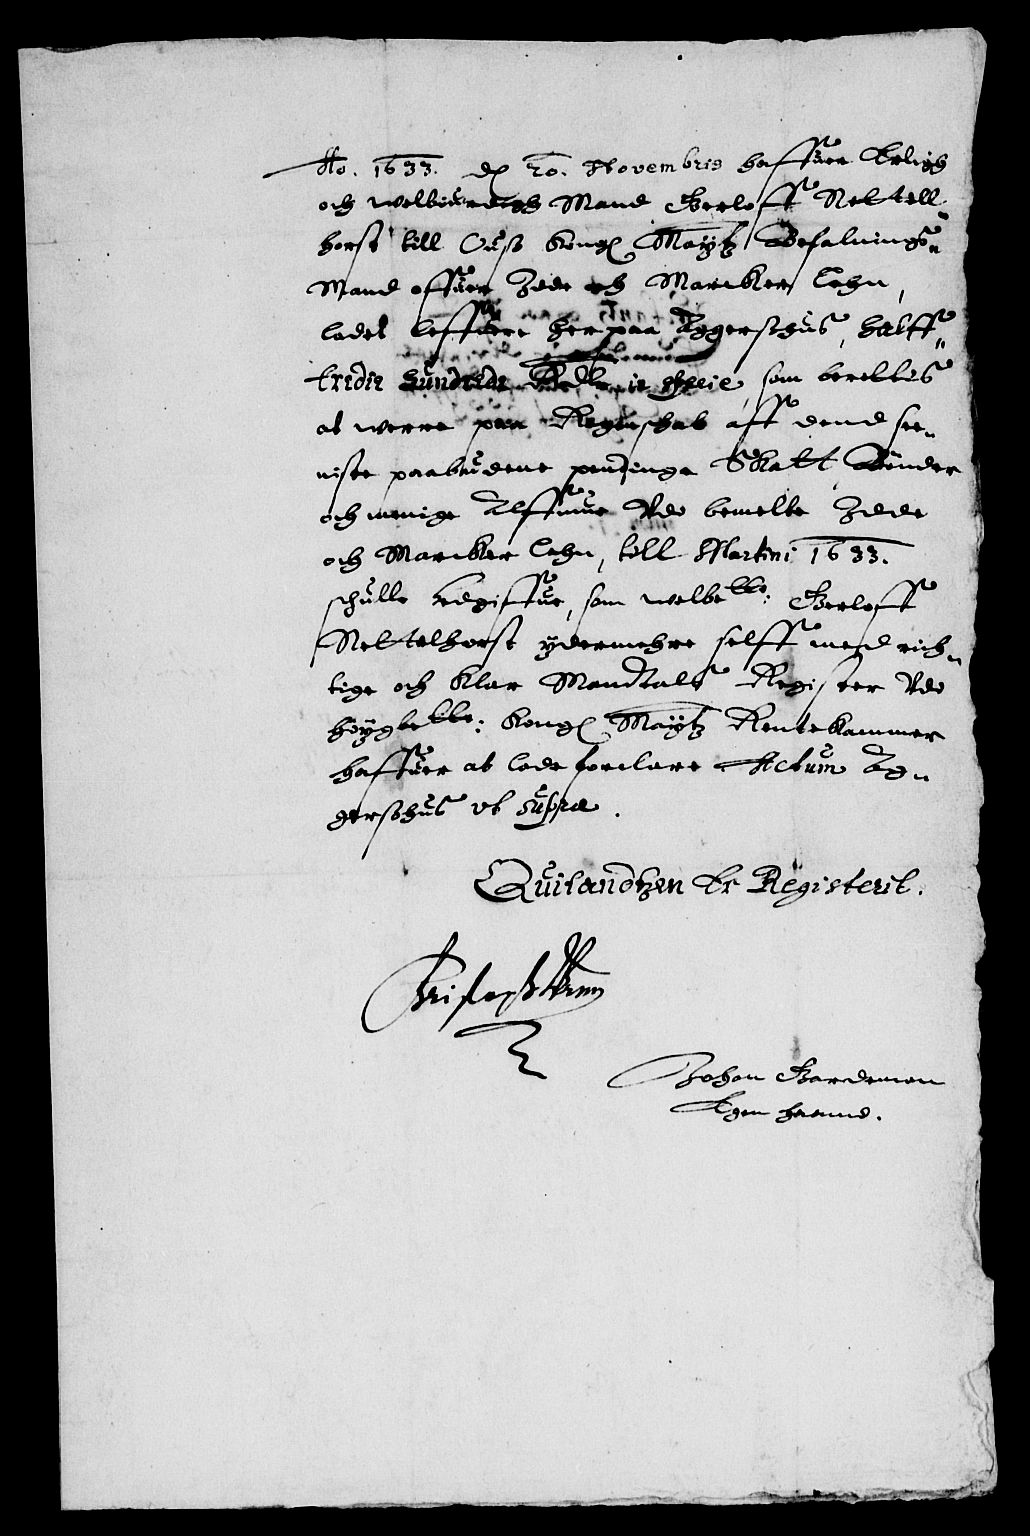 Ao. 1633. dend 20. Novembris haffuer Erligh
och welbiurdigh Mand Gerloff Nettell-
horst till Ørß Kongl Maytz Befalnings-
Mand offuer Idde och Marcker Lehn,
ladet leffuere her paa Aggershus, halff-
tredie hundrede Rdlr in specie, som berettis
at werre paa Regenschab aff dend see-
niste paabudene pendinge Skatt, Bønder
och menige Alffmue Vdi bemelte Idde
och Marcker Lehn, till Martini 1633.
schulle Udgiffue, som welbete: Gerloff
Nettelhorst ydermehre selff med rich-
tige och klar Mandtals Register Vdi
høygbete: Kongl Maytz Rentekammer
haffuer at lade forclare Actum Ag-
gershus ut supra.
Quitandtzen Er Registerit.
Johan Gardeman
Egen haannd.